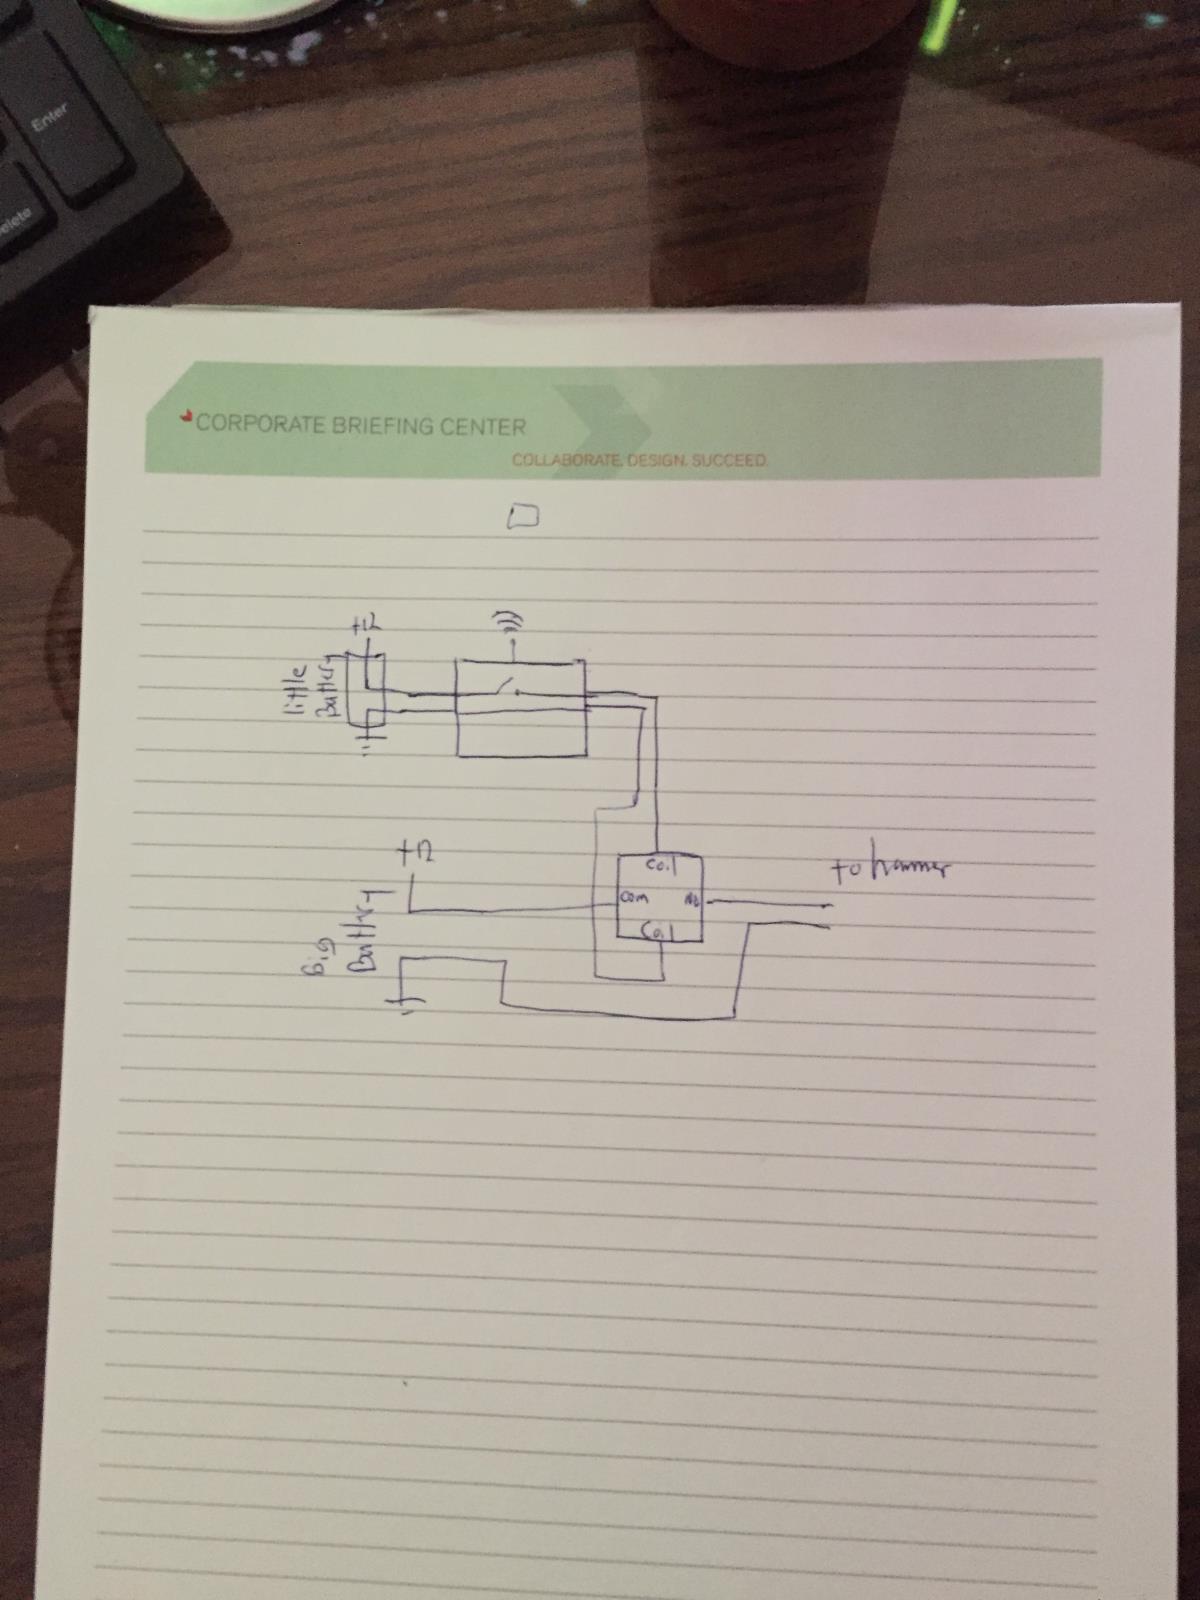 Enter
Delete
CORPORATE BRIEFING CENTER
COLLABORATE. DESIGN. SUCCEED.
+12
little
Battery
Coil
+12
to hammer
Com
NO
Coil
Big
Battery